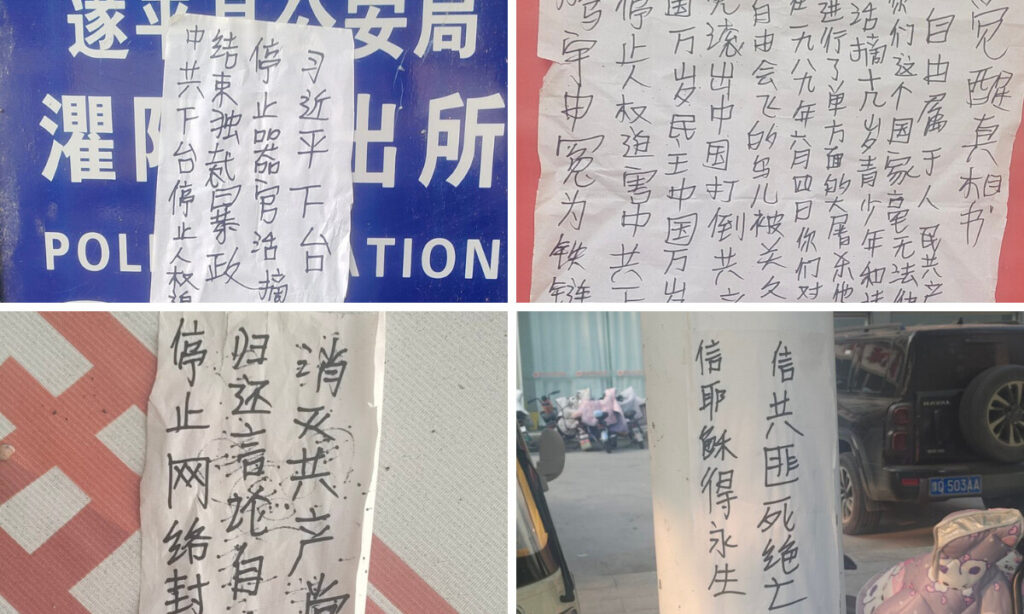 遂平县公安局
出所
习近平下台
停止器官活摘
结束独裁暴政
中共下台停止人权迫
醒真相书
自由属于人民共产
你们这个国家毫无法
活摘十几岁青少年和
进行了单方面的大屠杀他
在一九八九年六月四日你们对
自由会飞的鸟儿被关久
滚出中国打倒共产
国万岁民王中国万岁
停止人权迫害中共下
宇申冤为铁链
消灭共产党
归还言论自
停止网络封
信共匪死绝亡
信耶穌得永生
HAVAL
Q·503AA